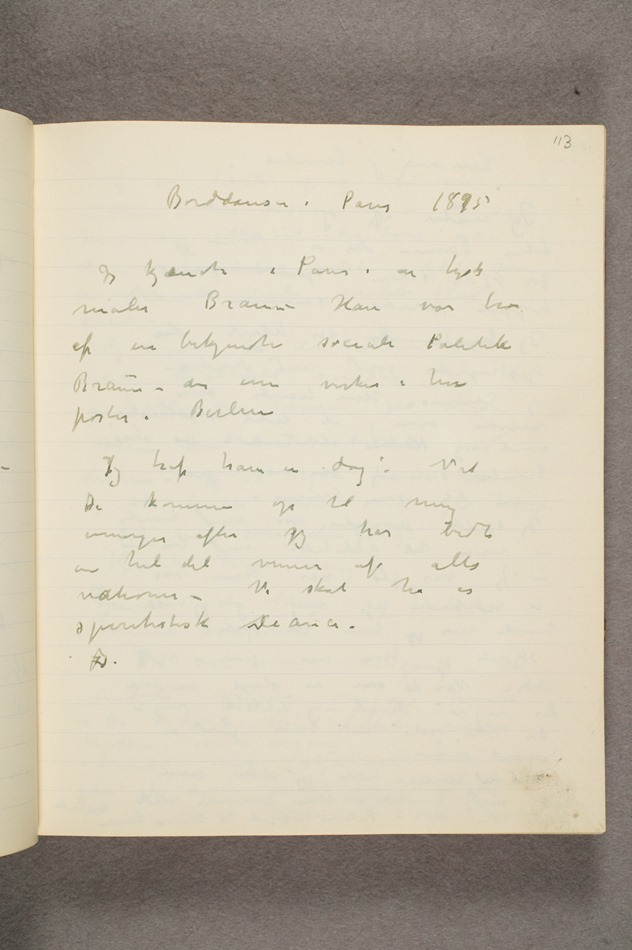 113
Borddansen i Paris 1895
Jeg kjendte i Paris i en tysk
maler Braun – Han var bror
af en bekjendte sociale Politik
Braun – der
poster i Berlin
Jeg traf ham en dag: Vil
De komme op til mig
imorgen aften Jeg har bedt
en hel del venner af alle
nationer – Vi skal ha en
spiritistisk seance.